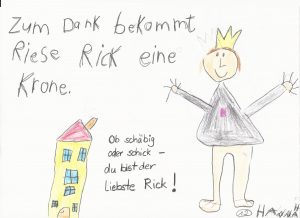 Zum Dank bekommt
Riese Rick eine
Krone.
Ob schäbig
oder schick -
du bist der
liebste Rick!